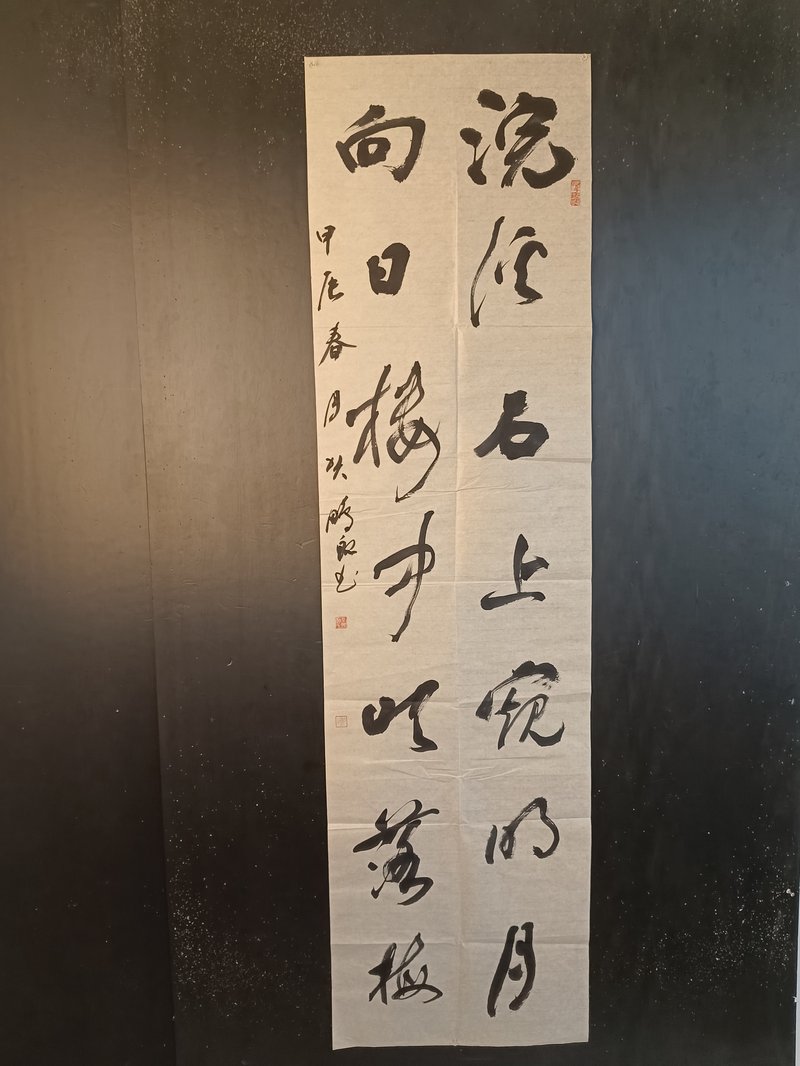 浣溪石上窥明月
向日楼中吹落梅
甲辰春月鹏书